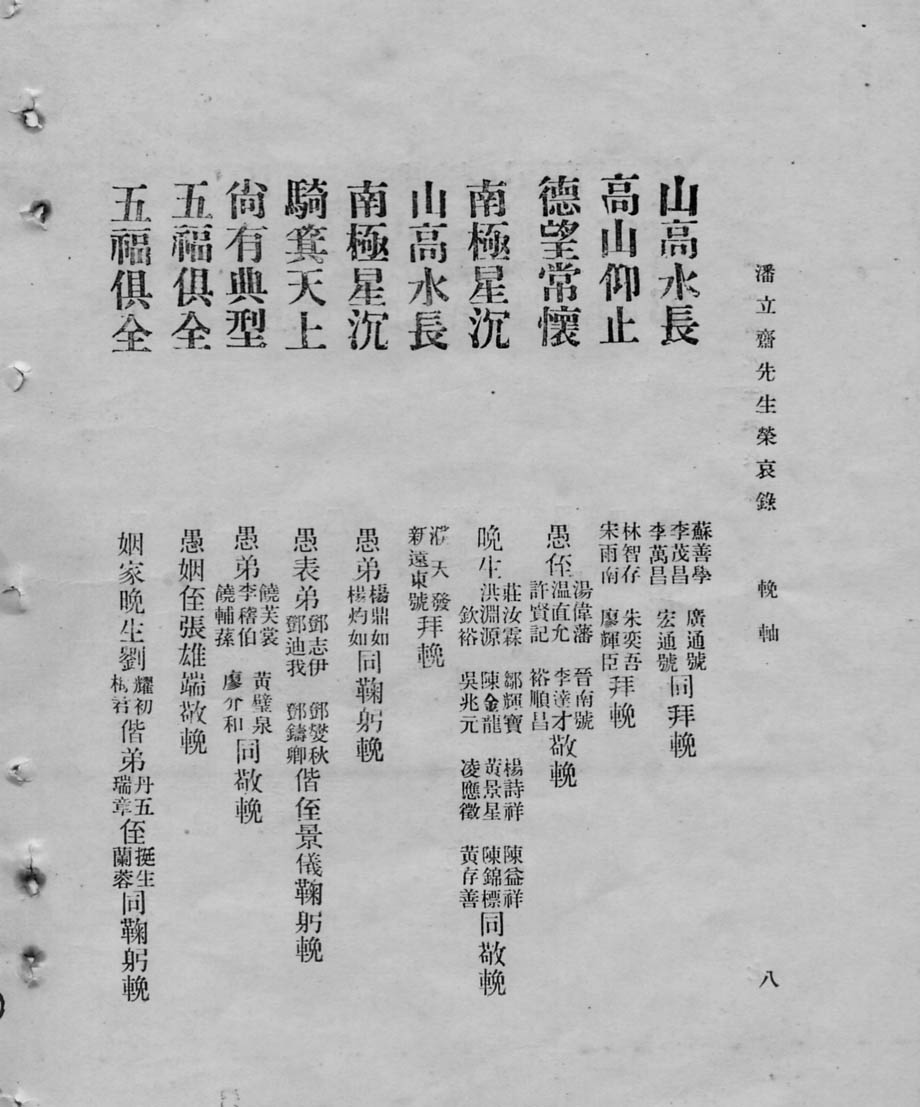 潘立齋先生榮哀錄 輓軸 八
山高水長 蘇善學 李茂昌 李萬昌 廣通號 宏通號 同拜輓
高山仰止 林智存 宋雨南 朱奕吾 廖輝臣 拜輓
德望常懷 愚侄 湯偉藩 温直允 許賢記 晉南號 李達才 裕順昌 敬輓
南極星沉 晚生 莊汝霖 洪淵源 欽裕 鄒輝寶 陳金龍 吳兆元 楊詩祥 黃景星 凌應徵 陳益祥 陳錦標 黃存善 同敬輓
山高水長 濮天發 新遠東號 拜輓
南極星沉 愚弟 楊鼎如 楊灼如 同鞠躬輓
騎箕天上 愚表弟 鄧志伊 鄧迪我 鄧燮秋 鄧鑄卿 偕侄景儀鞠躬輓
尙有典型 愚弟 饒芙裳 李稽伯 饒輔蓀 黃璧泉 廖介和 同敬輓
五福俱全 愚姻侄張雄端敬輓
五福俱全 姻家晚生劉 耀初 君 偕弟 丹五 瑞章 侄 挺生 蘭蓉 同鞠躬輓